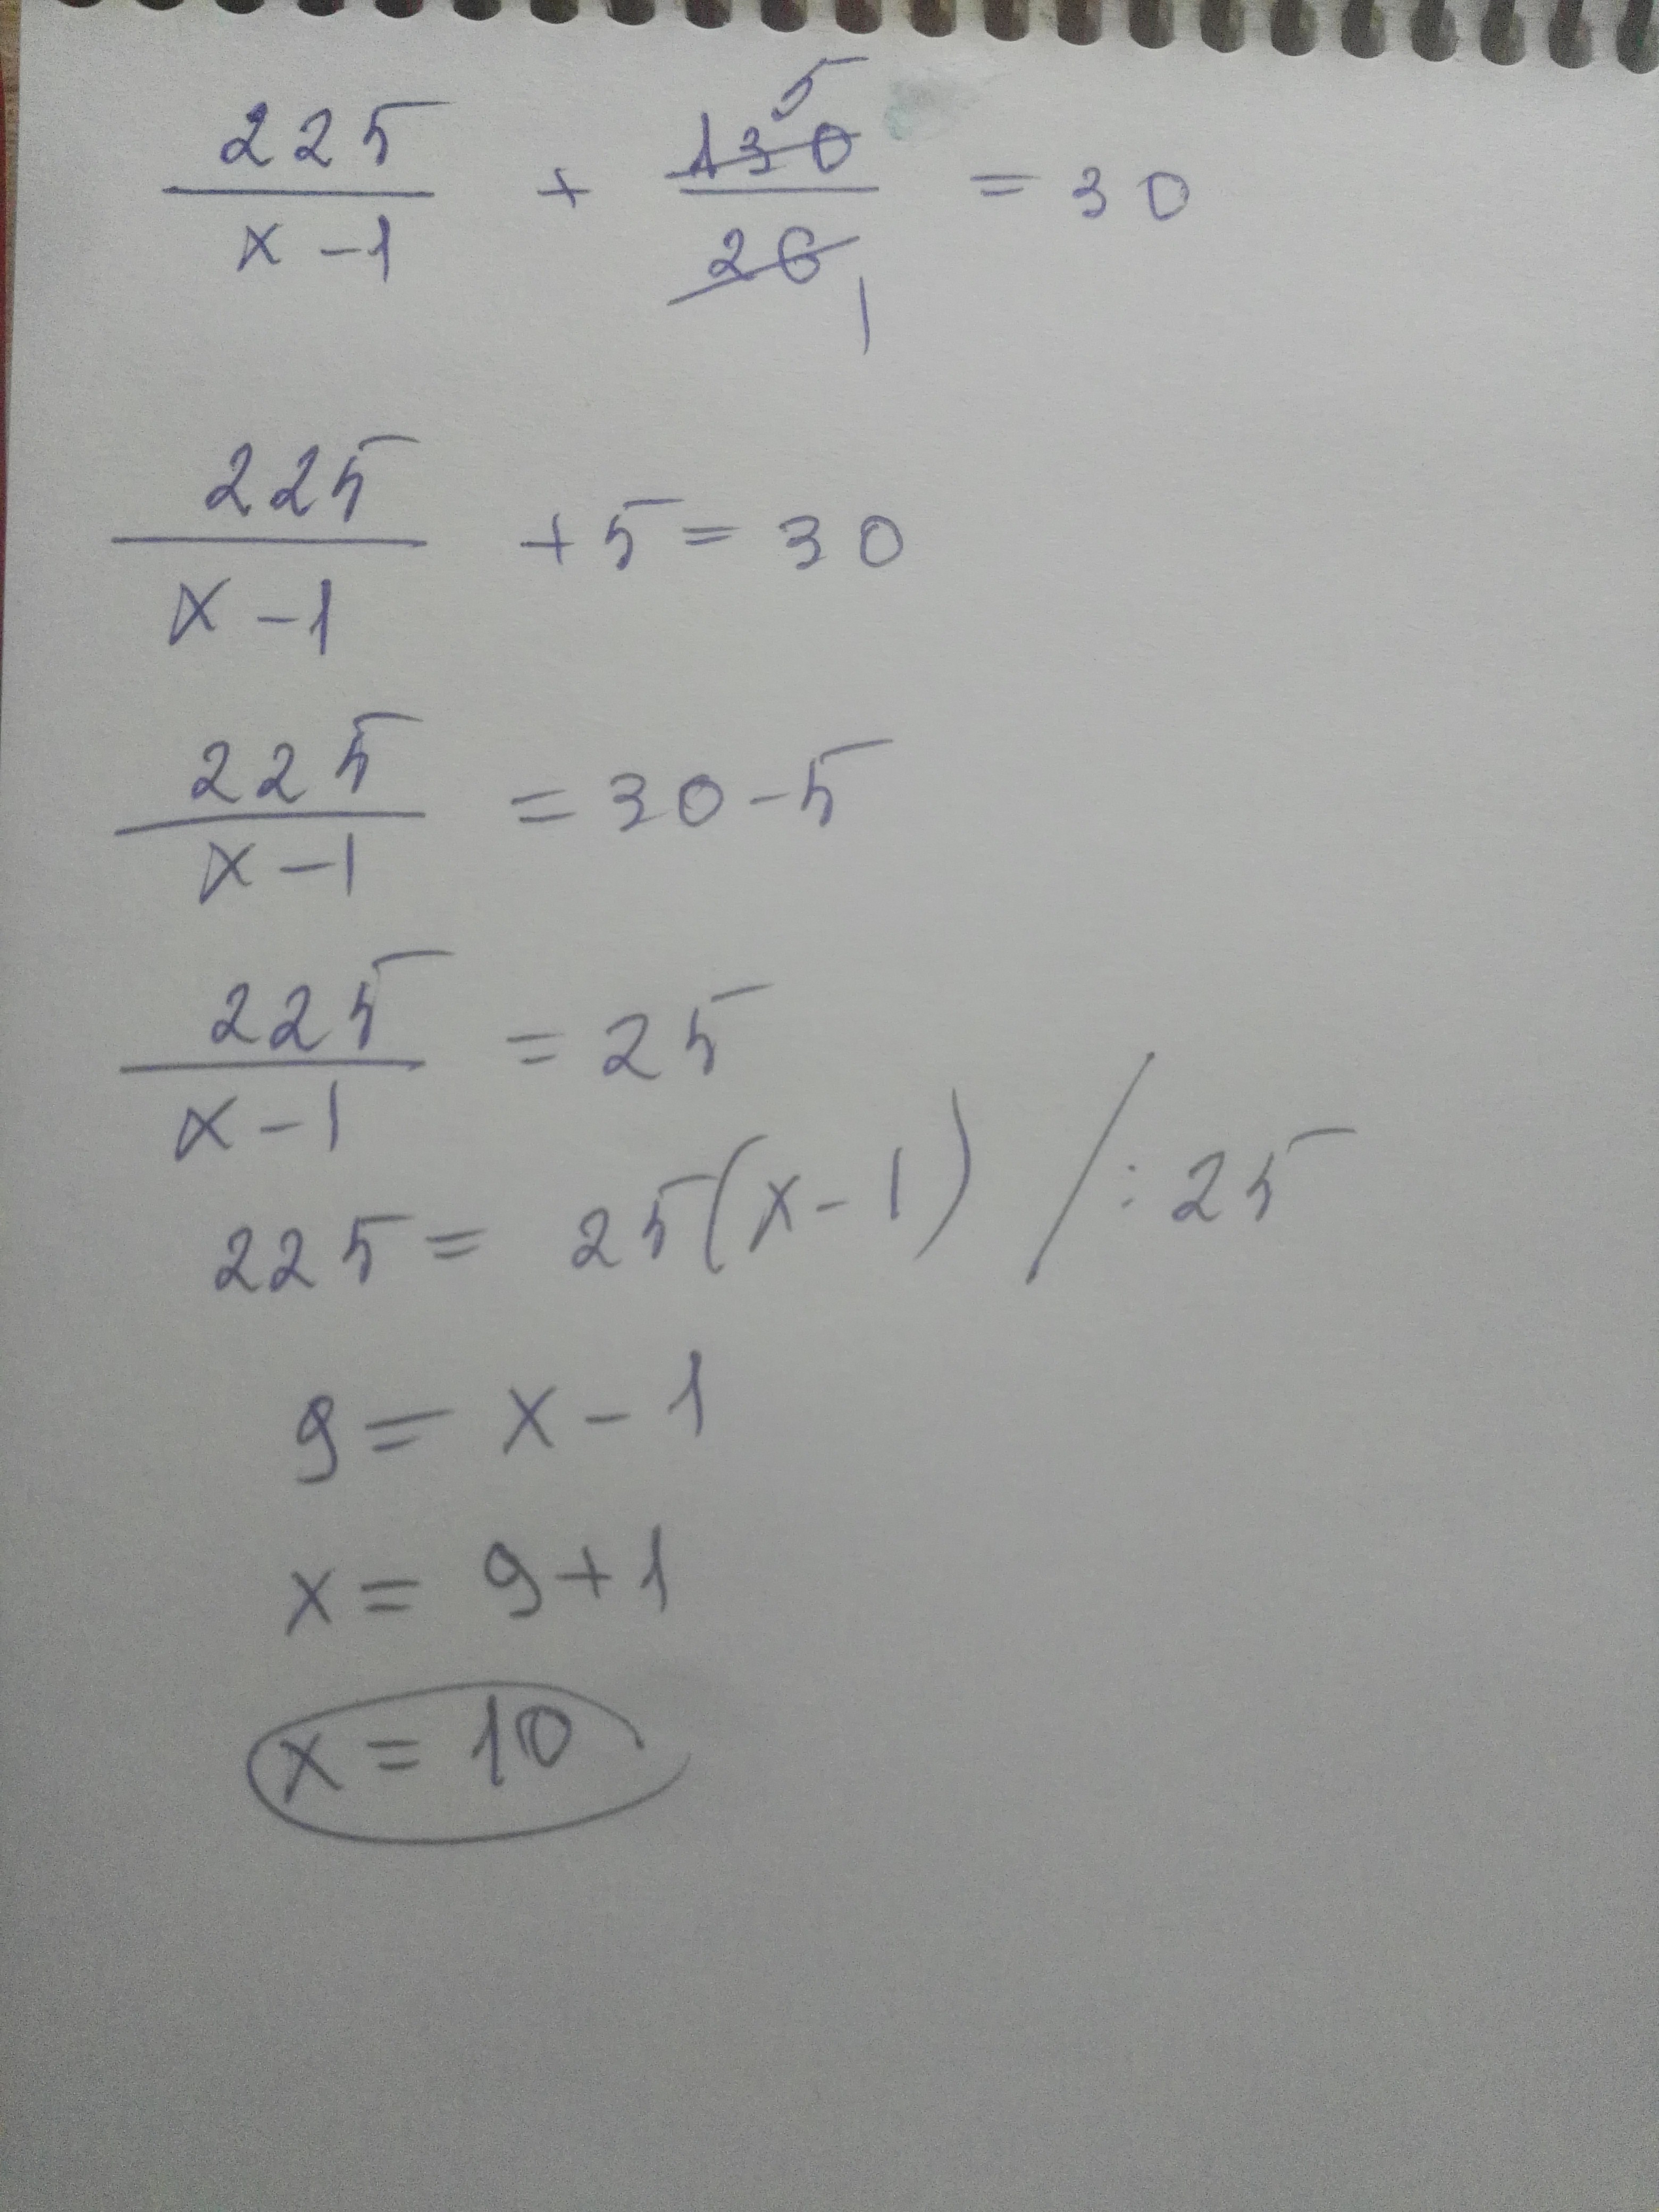 225/(x-1) + 130/26 = 30
5
1
225/(x-1) + 5 = 30
225/(x-1) = 30-5
225/(x-1) = 25
225 = 25(x-1) / :25
9 = x-1
x = 9+1
x = 10